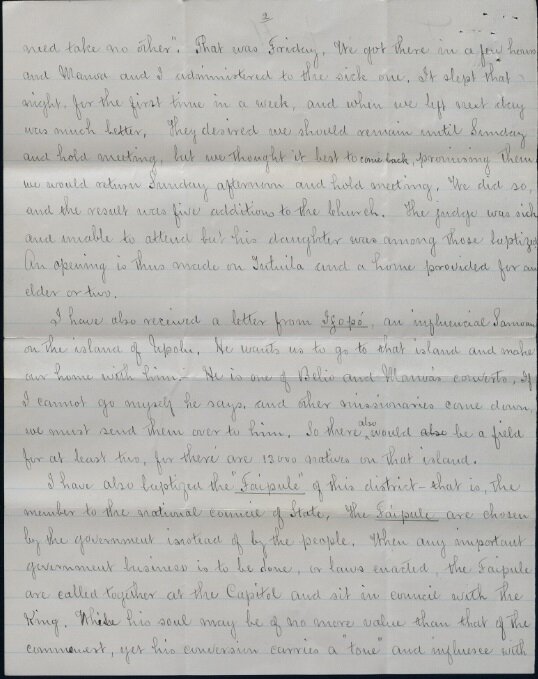 2
need take no other". That was Friday. We got there in a few hours
and Manoa and I administered to the sick one. It slept that
night, for the first time in a week, and when we left next day
was much better. They desired we should remain until Sunday
and hold meeting, but we thought it best to come back, promising them
we would return Sunday afternoon and hold meeting. We did so,
and the result was five additions to the Church. The judge was sick
and unable to attend but his daughter was among those baptized
An opening is thus made on Tutuila and a home provided for an
elder or two.
I have also received a letter from Ifopó, an influencial Samoan
on the island of Upolu. He wants us to go to that island and make
our home with him. He is one of Belio and Manoas converts. If
I cannot go myself he says, and other missionaries come down,
we must send them over to him. So there also would also be a field
for at least two, for there are 13000 natives on that island.
I have also baptized the "Faipule" of this district - that is, the
member to the national council of State. The Faipule are chosen
by the government instead of by the people. When any important
government business is to be done, or laws enacted, the Faipule
are called together at the Capitol and sit in council with the
King. While his soul may be of no more value than that of the
commonest, yet his conversion carries a "tone" and influence with